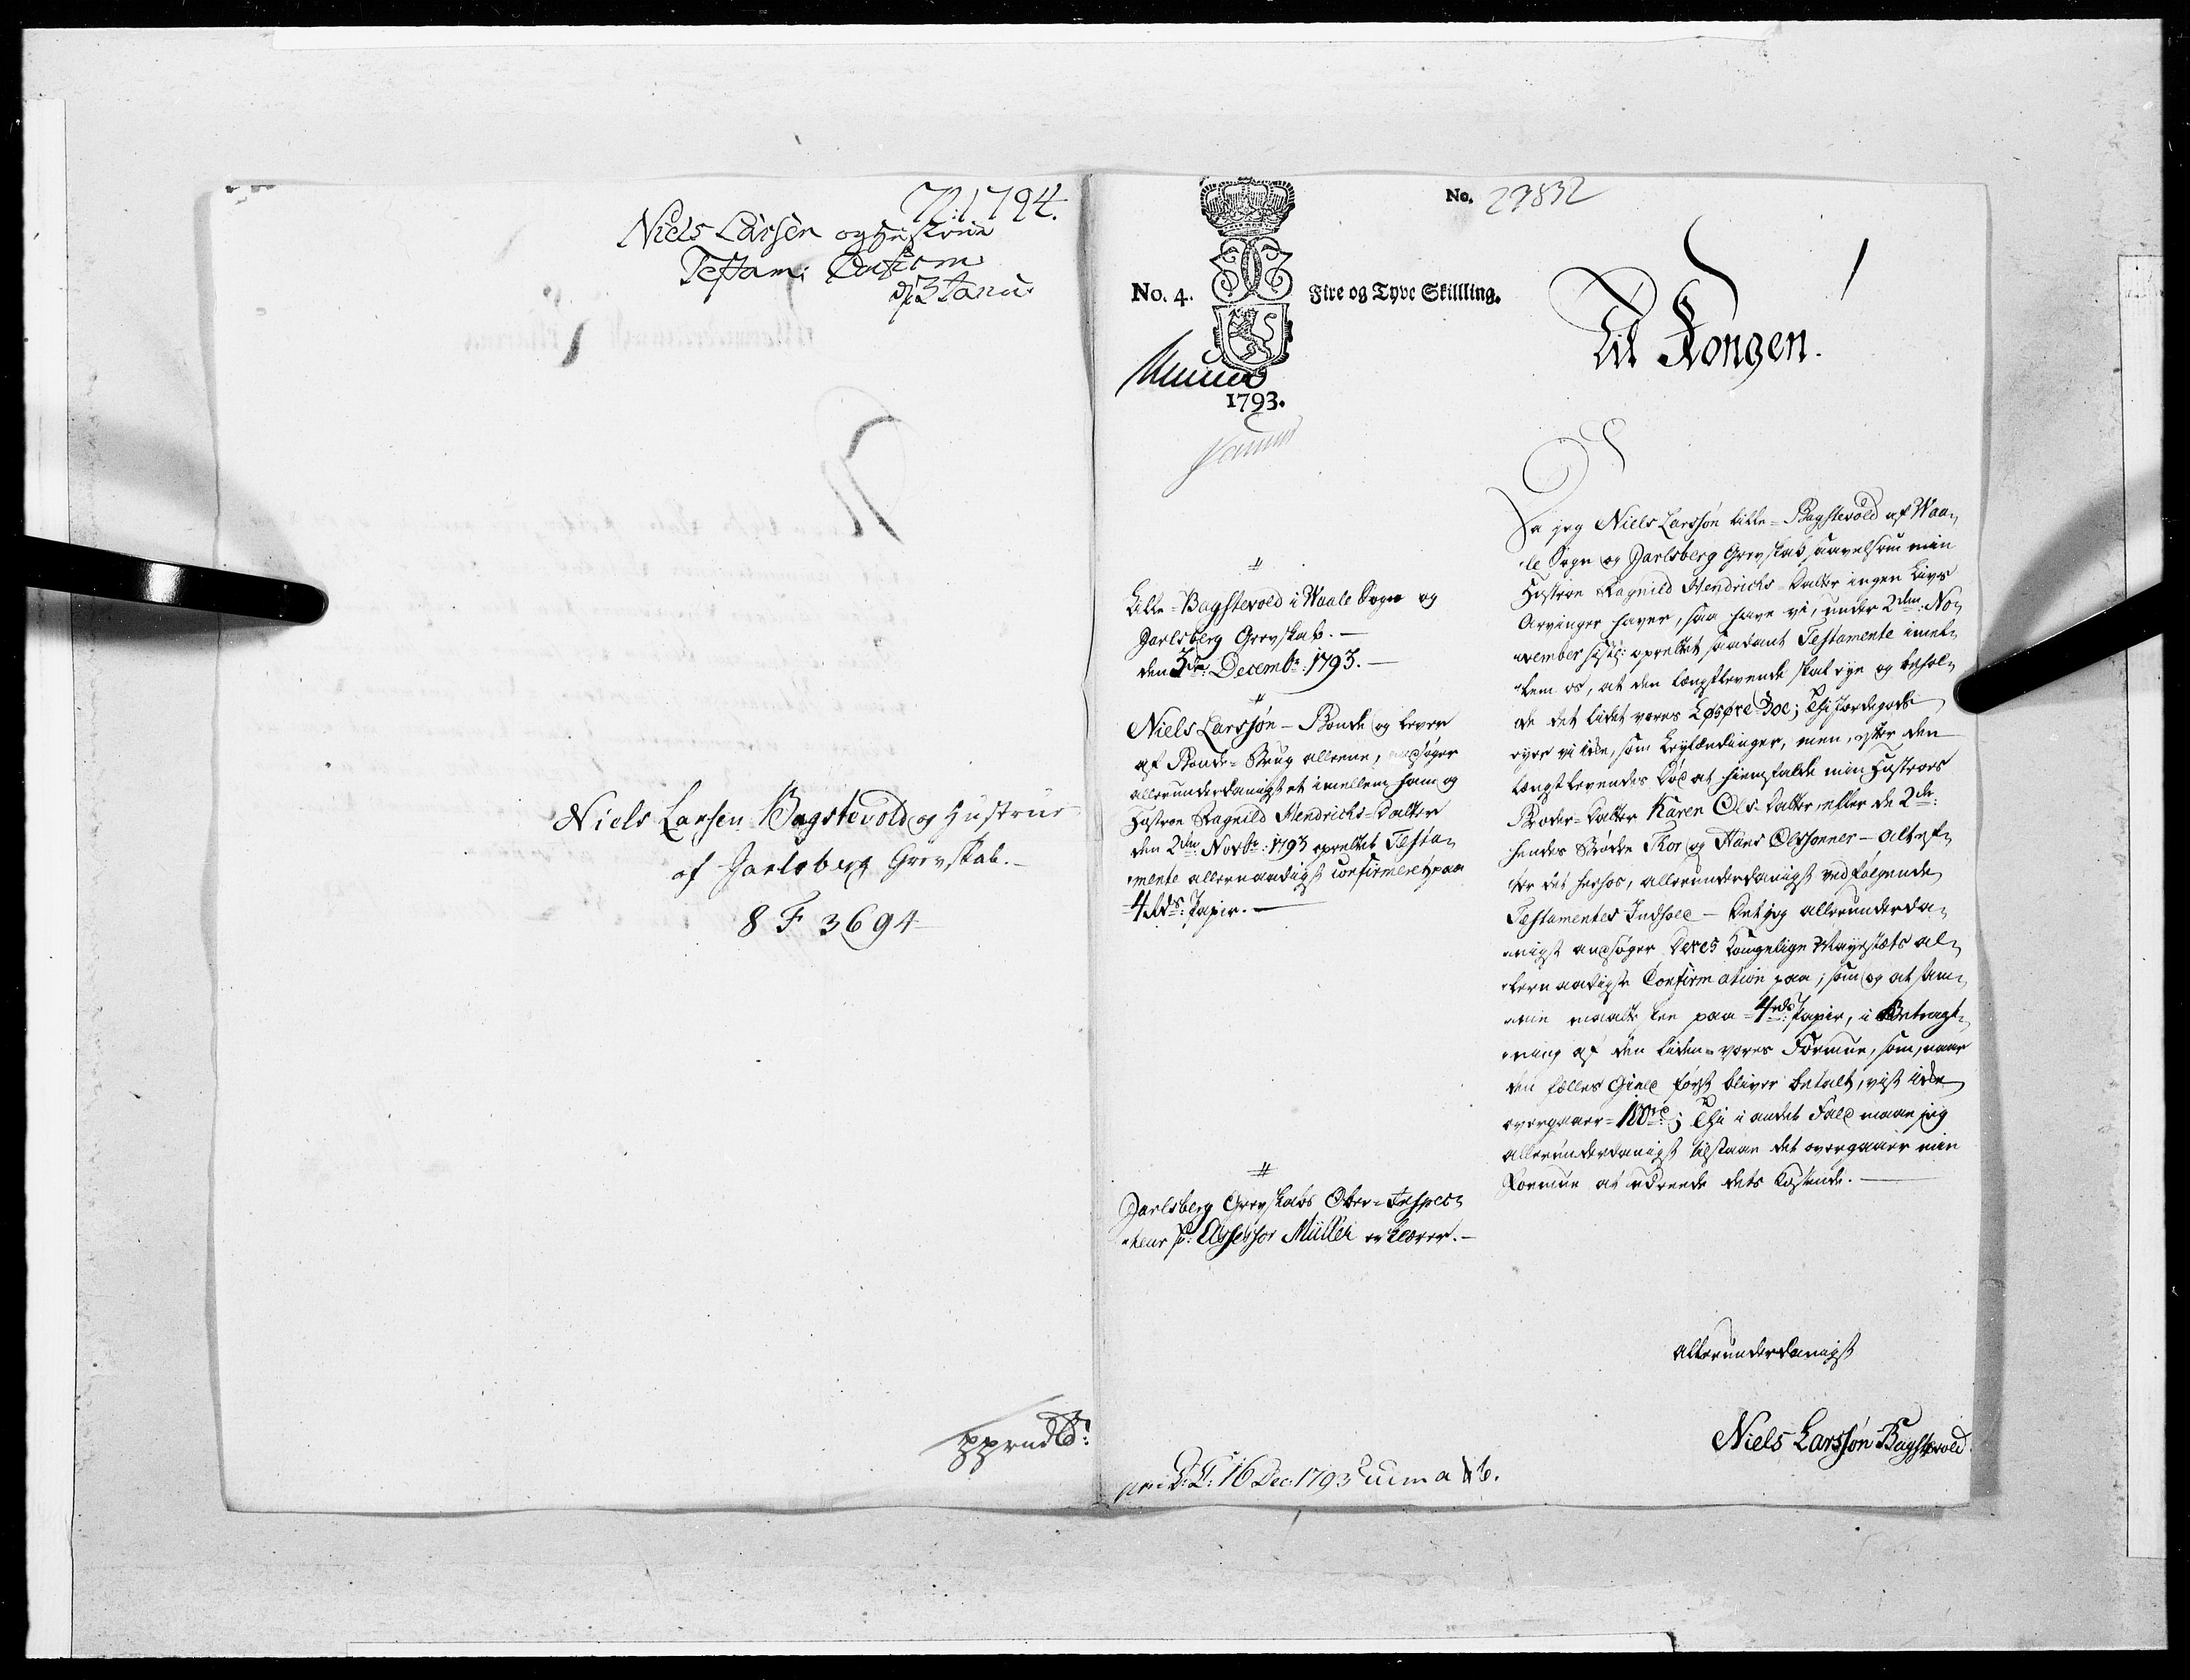 72: 1794.
Niels Larsen og Hustrue
Testam: Confirm:
d: 3 Janu:
Niels Larsen Bagstevold og Hustrue
af Jarlsberg Grevskab.-
8 F 3694
No. 29832
No. 4. Fire og Tyve Skillling.
1793.
Til Kongen.
Lille-Bagstevold i Waale Sogn og
Jarlsberg Grevskab. -
den 3die Decembr: 1793. -
Niels Larssøn - Bonde og lever
af Bonde-Brug alleene, ansøger
allerunderdanigst et imellem ham og
Hustroe Ragnild Hendrichs-Datter
den 2den Novbr: 1793 oprettet Testa-
mente allernaadigst confirmeret paa
4 Rds: Papir. -
Jarlsberg Grevskabs Ober-Inspec-
teur Hr: Assessor Müller erklærer. -
16 Dec: 1793 cum a & b.
Da jeg Niels Larssøn lille-Bagstevold af Waa-
le Sogn og Jarlsberg Grevskab saavelsom min
Hustroe Ragnild Hendrichs-Datter ingen Livs
Arvinger haver, saa have vi, under 2den: No-
vember sistl: oprettet saadant Testamente imel-
lem os, at den længstlevende skal eye og behol-
de det lidet vores Løsøre Boe; Thi Jordegods
eyer vi icke, som Leylændinger, men, efter den
længstlevendes Død at hiemfalde min Hustroes
Broder-Datter Karen Ols-Datter eller de 2de:
hendes Brødre Thor og Hans Olssønner - alt ef-
ter det herhos, allerunderdanigst vedfølgende
Testamentes Indhold - Det jeg allerunderda-
nigst ansøger Deres Kongelige Mayestæts al-
lernaadigste Confirmation paa; som og at sam-
me maatte skee paa 4 rds: Papir, i Betragt-
ning af den liden vores Formue, som, naar
den fælles Gield først bliver betalt, vist icke
overgaaer 100 rd: ; Thi i andet Fald maae jeg
allerunderdanigst tilstaae det overgaaer min
Formue at udreede dets Kostende. -
allerunderdanigst
Niels Larssøn Bagstevold